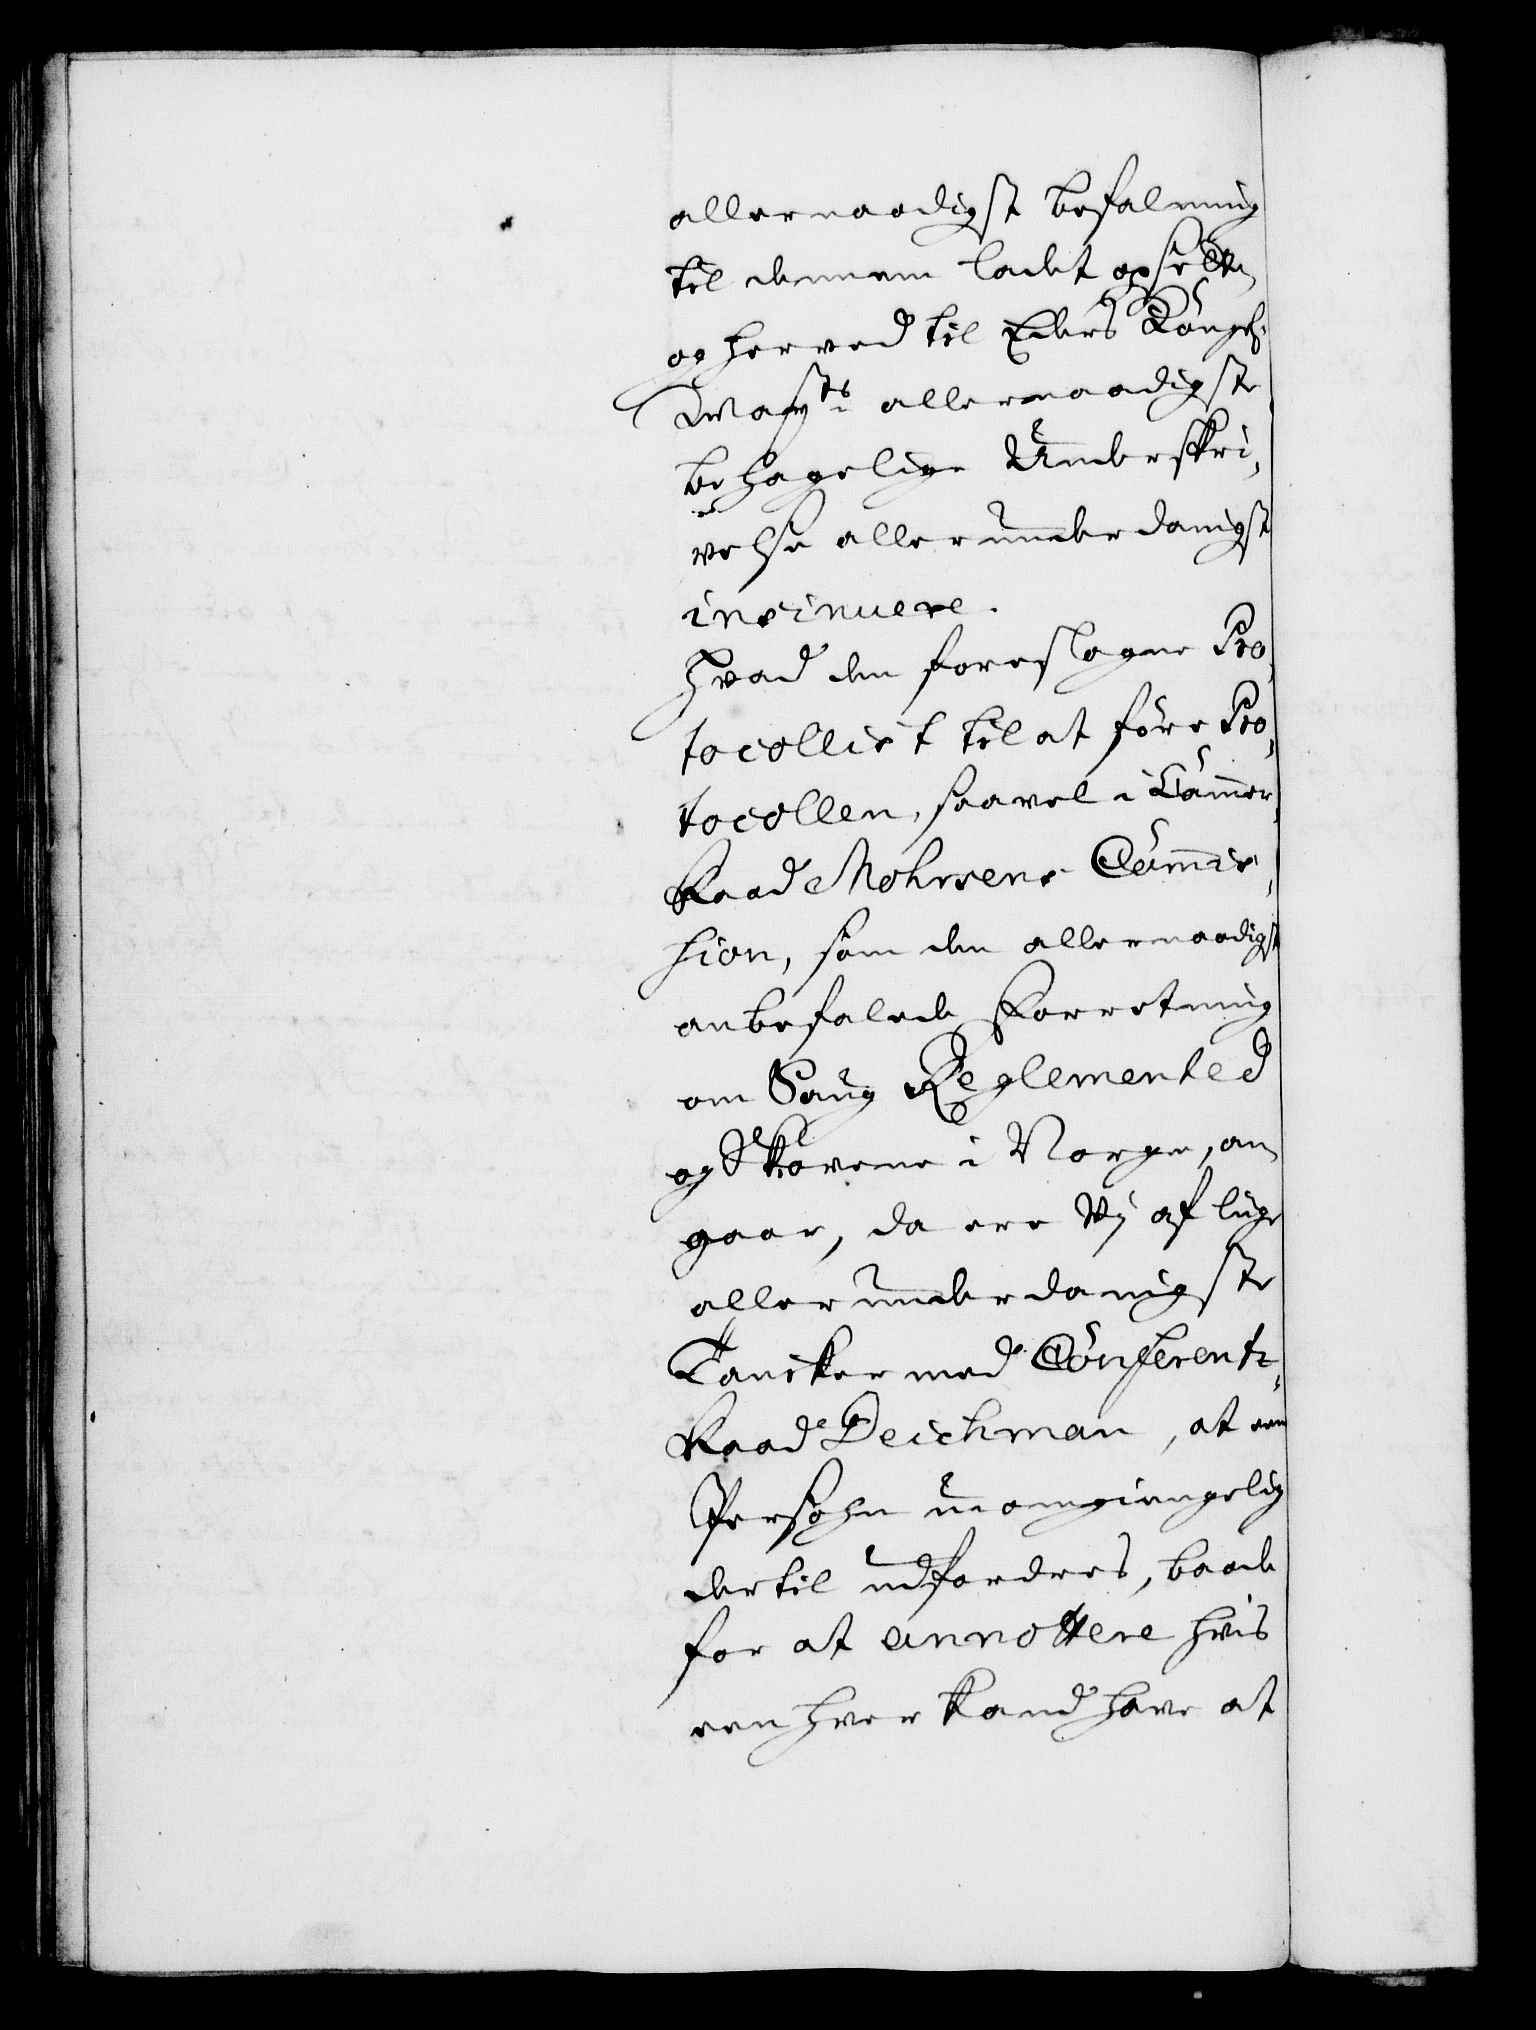 allernaadigst befalning
til dennem ladet opsette,
og herved til Eders Kongel:
Mayts allernaadigste
behagelige Underskri,
velse allerunderdanigst
insinuere.
Hvad den foreslagne Pro,
tocollist til at före Pro,
tocollen, saavel i Cammer,
Raad Mohrsens Commis,
sion, som den allernaadigst
anbefalede Forretning
om Saug Reglemented
og Skovene i Norge, an,
gaar, da ere Vj af lige
allerunderdanigste
Tancker med Conferentz,
Raad Deichman, at een
Persohn uomgiengelig
dertil udfordres, baade
for at annottere hvis
een hver kand have at